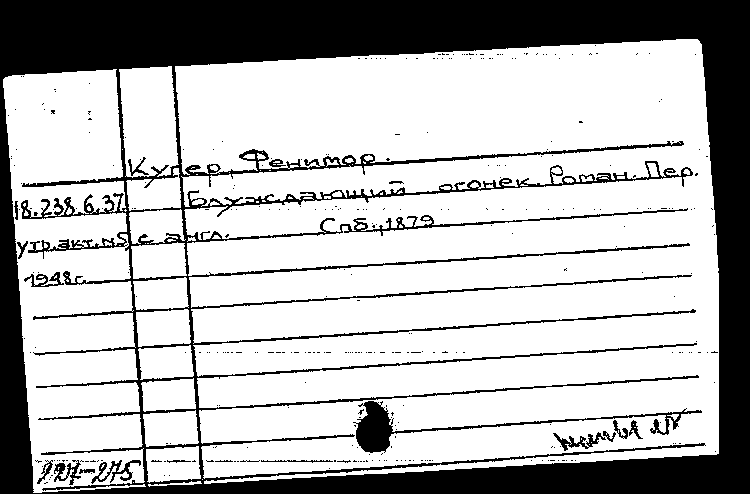 Купер, Фенимор.
18.238.6.37. Блуждающий огонек. Роман. Пер.
утр.акт.№5 с англ. Спб., 1879
1948г.
227-275